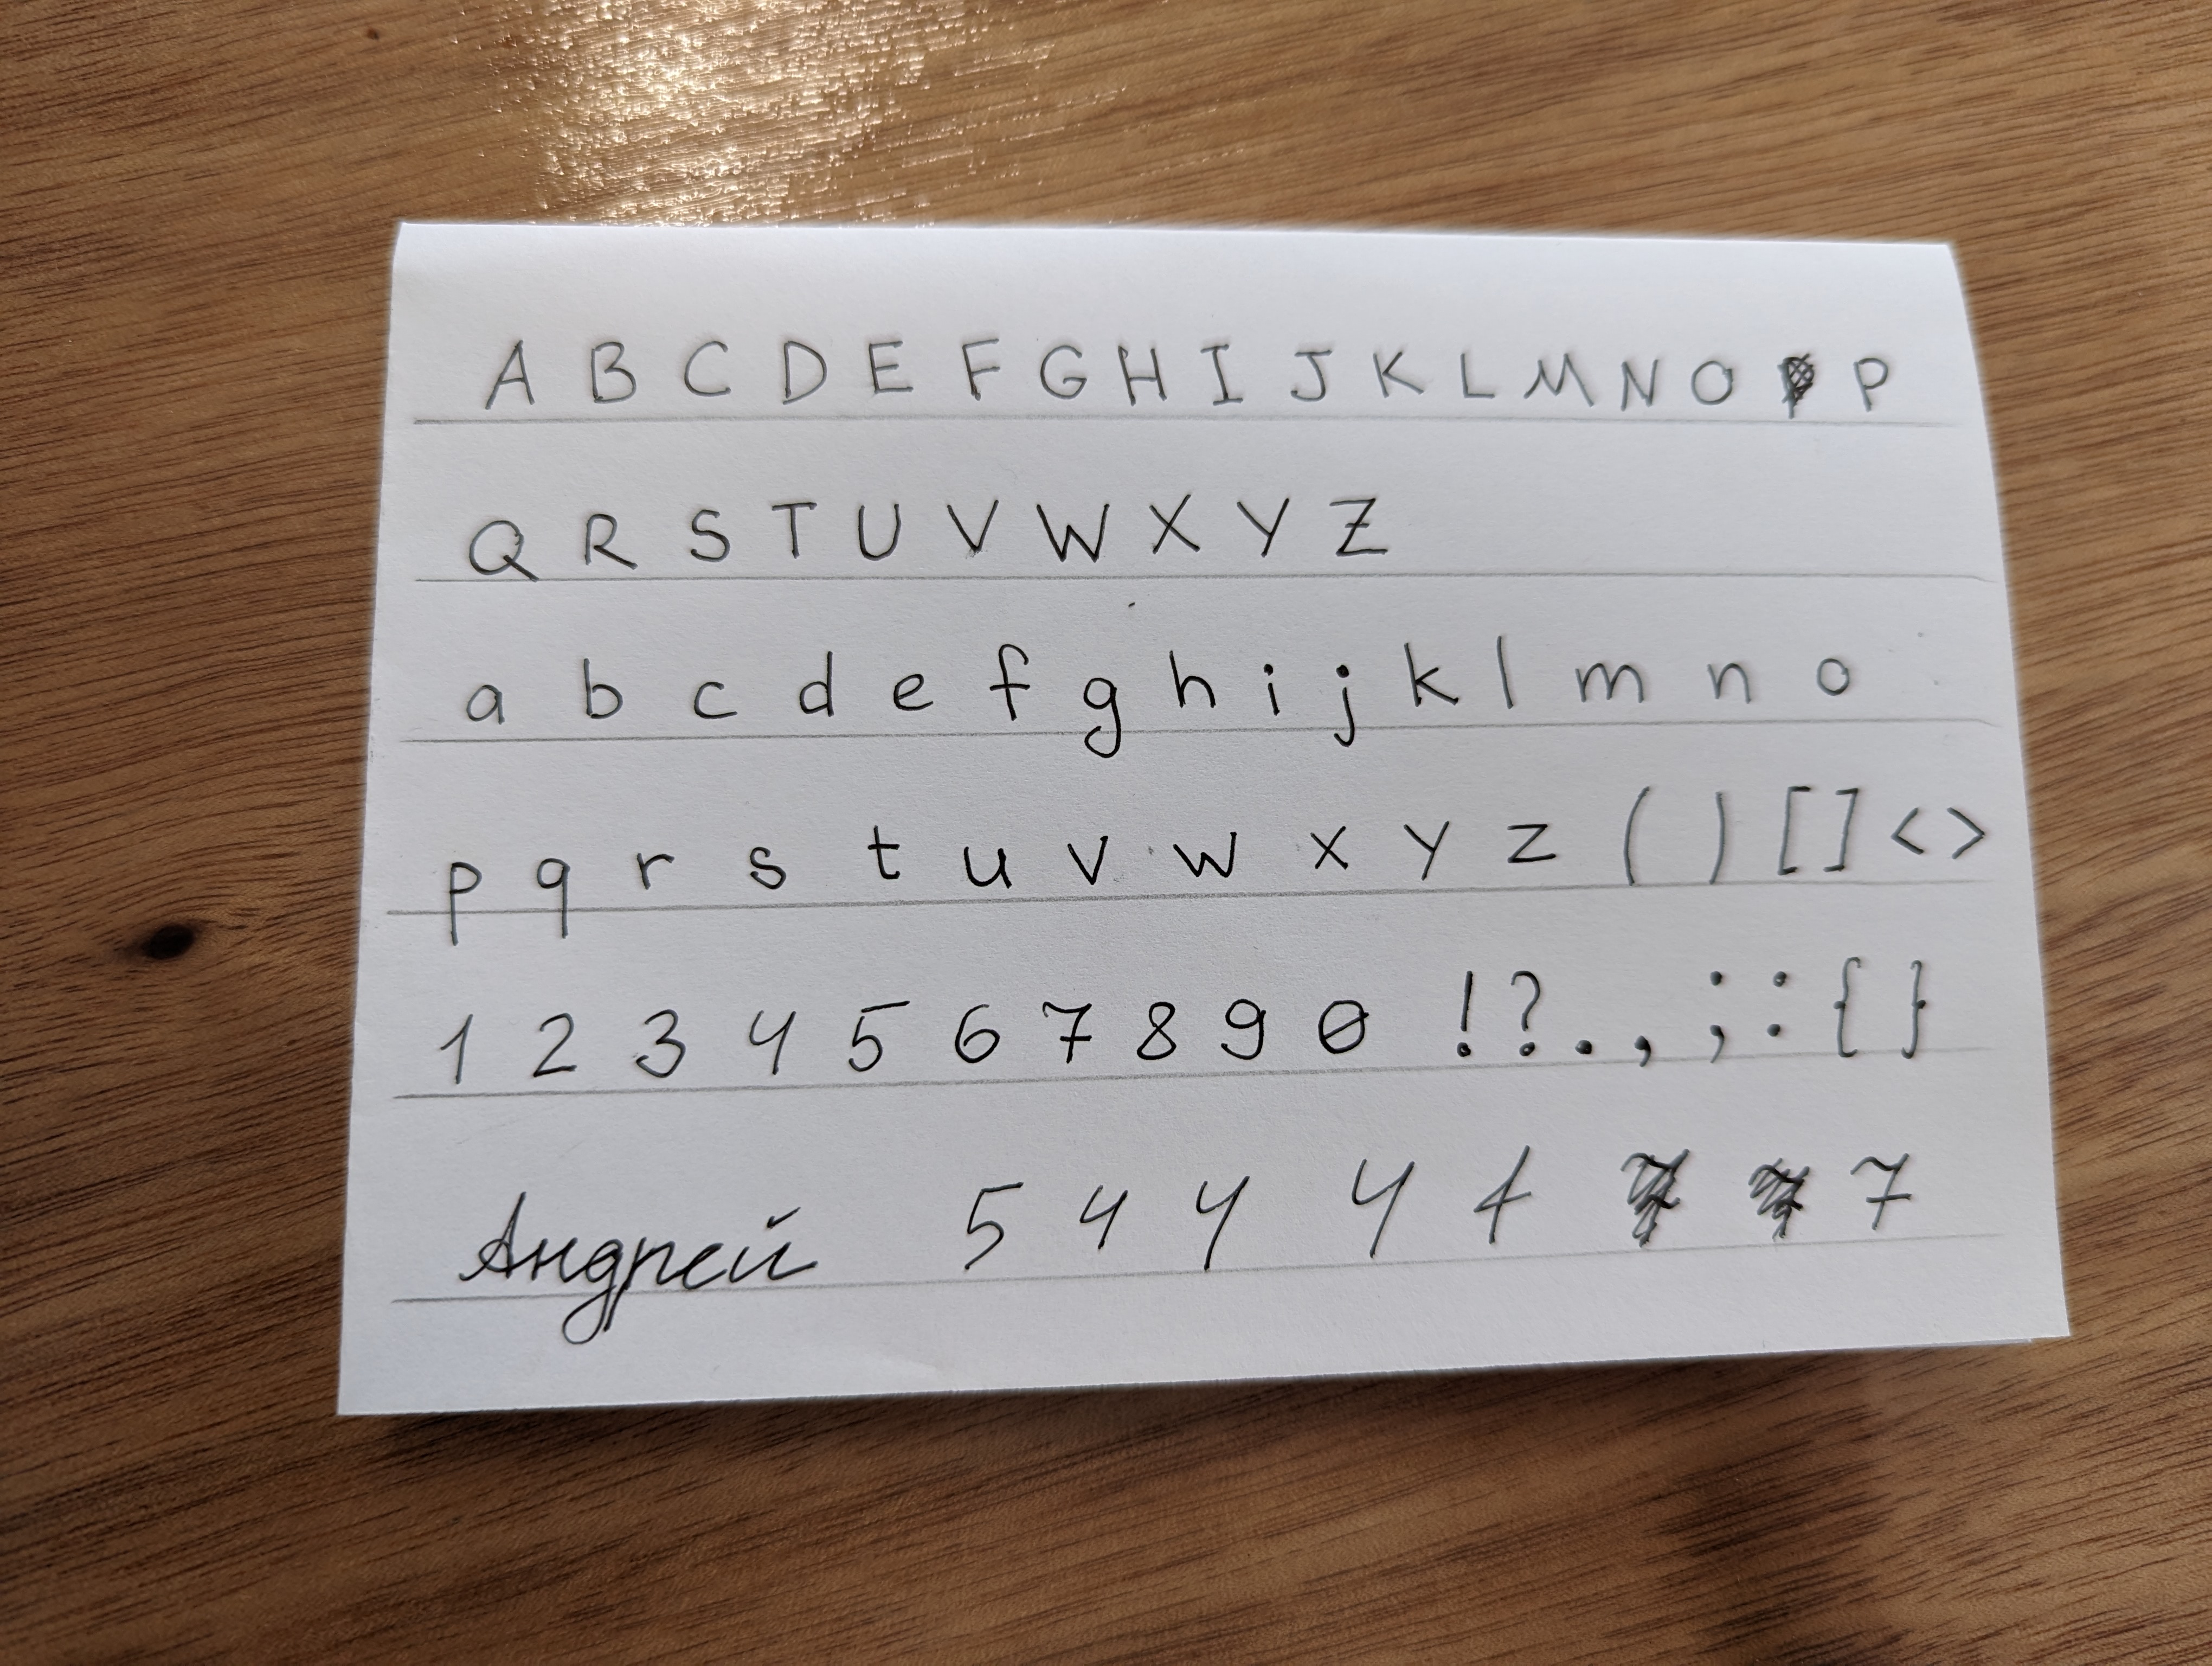 A B C D E F G H I J K L M N O P
Q R S T U V W X Y Z
a b c d e f g h i j k l m n o
p q r s t u v w x y z ( ) [ ] < >
1 2 3 4 5 6 7 8 9 0 ! ? . , ; : { }
Андрей 5 4 4 4 4 7